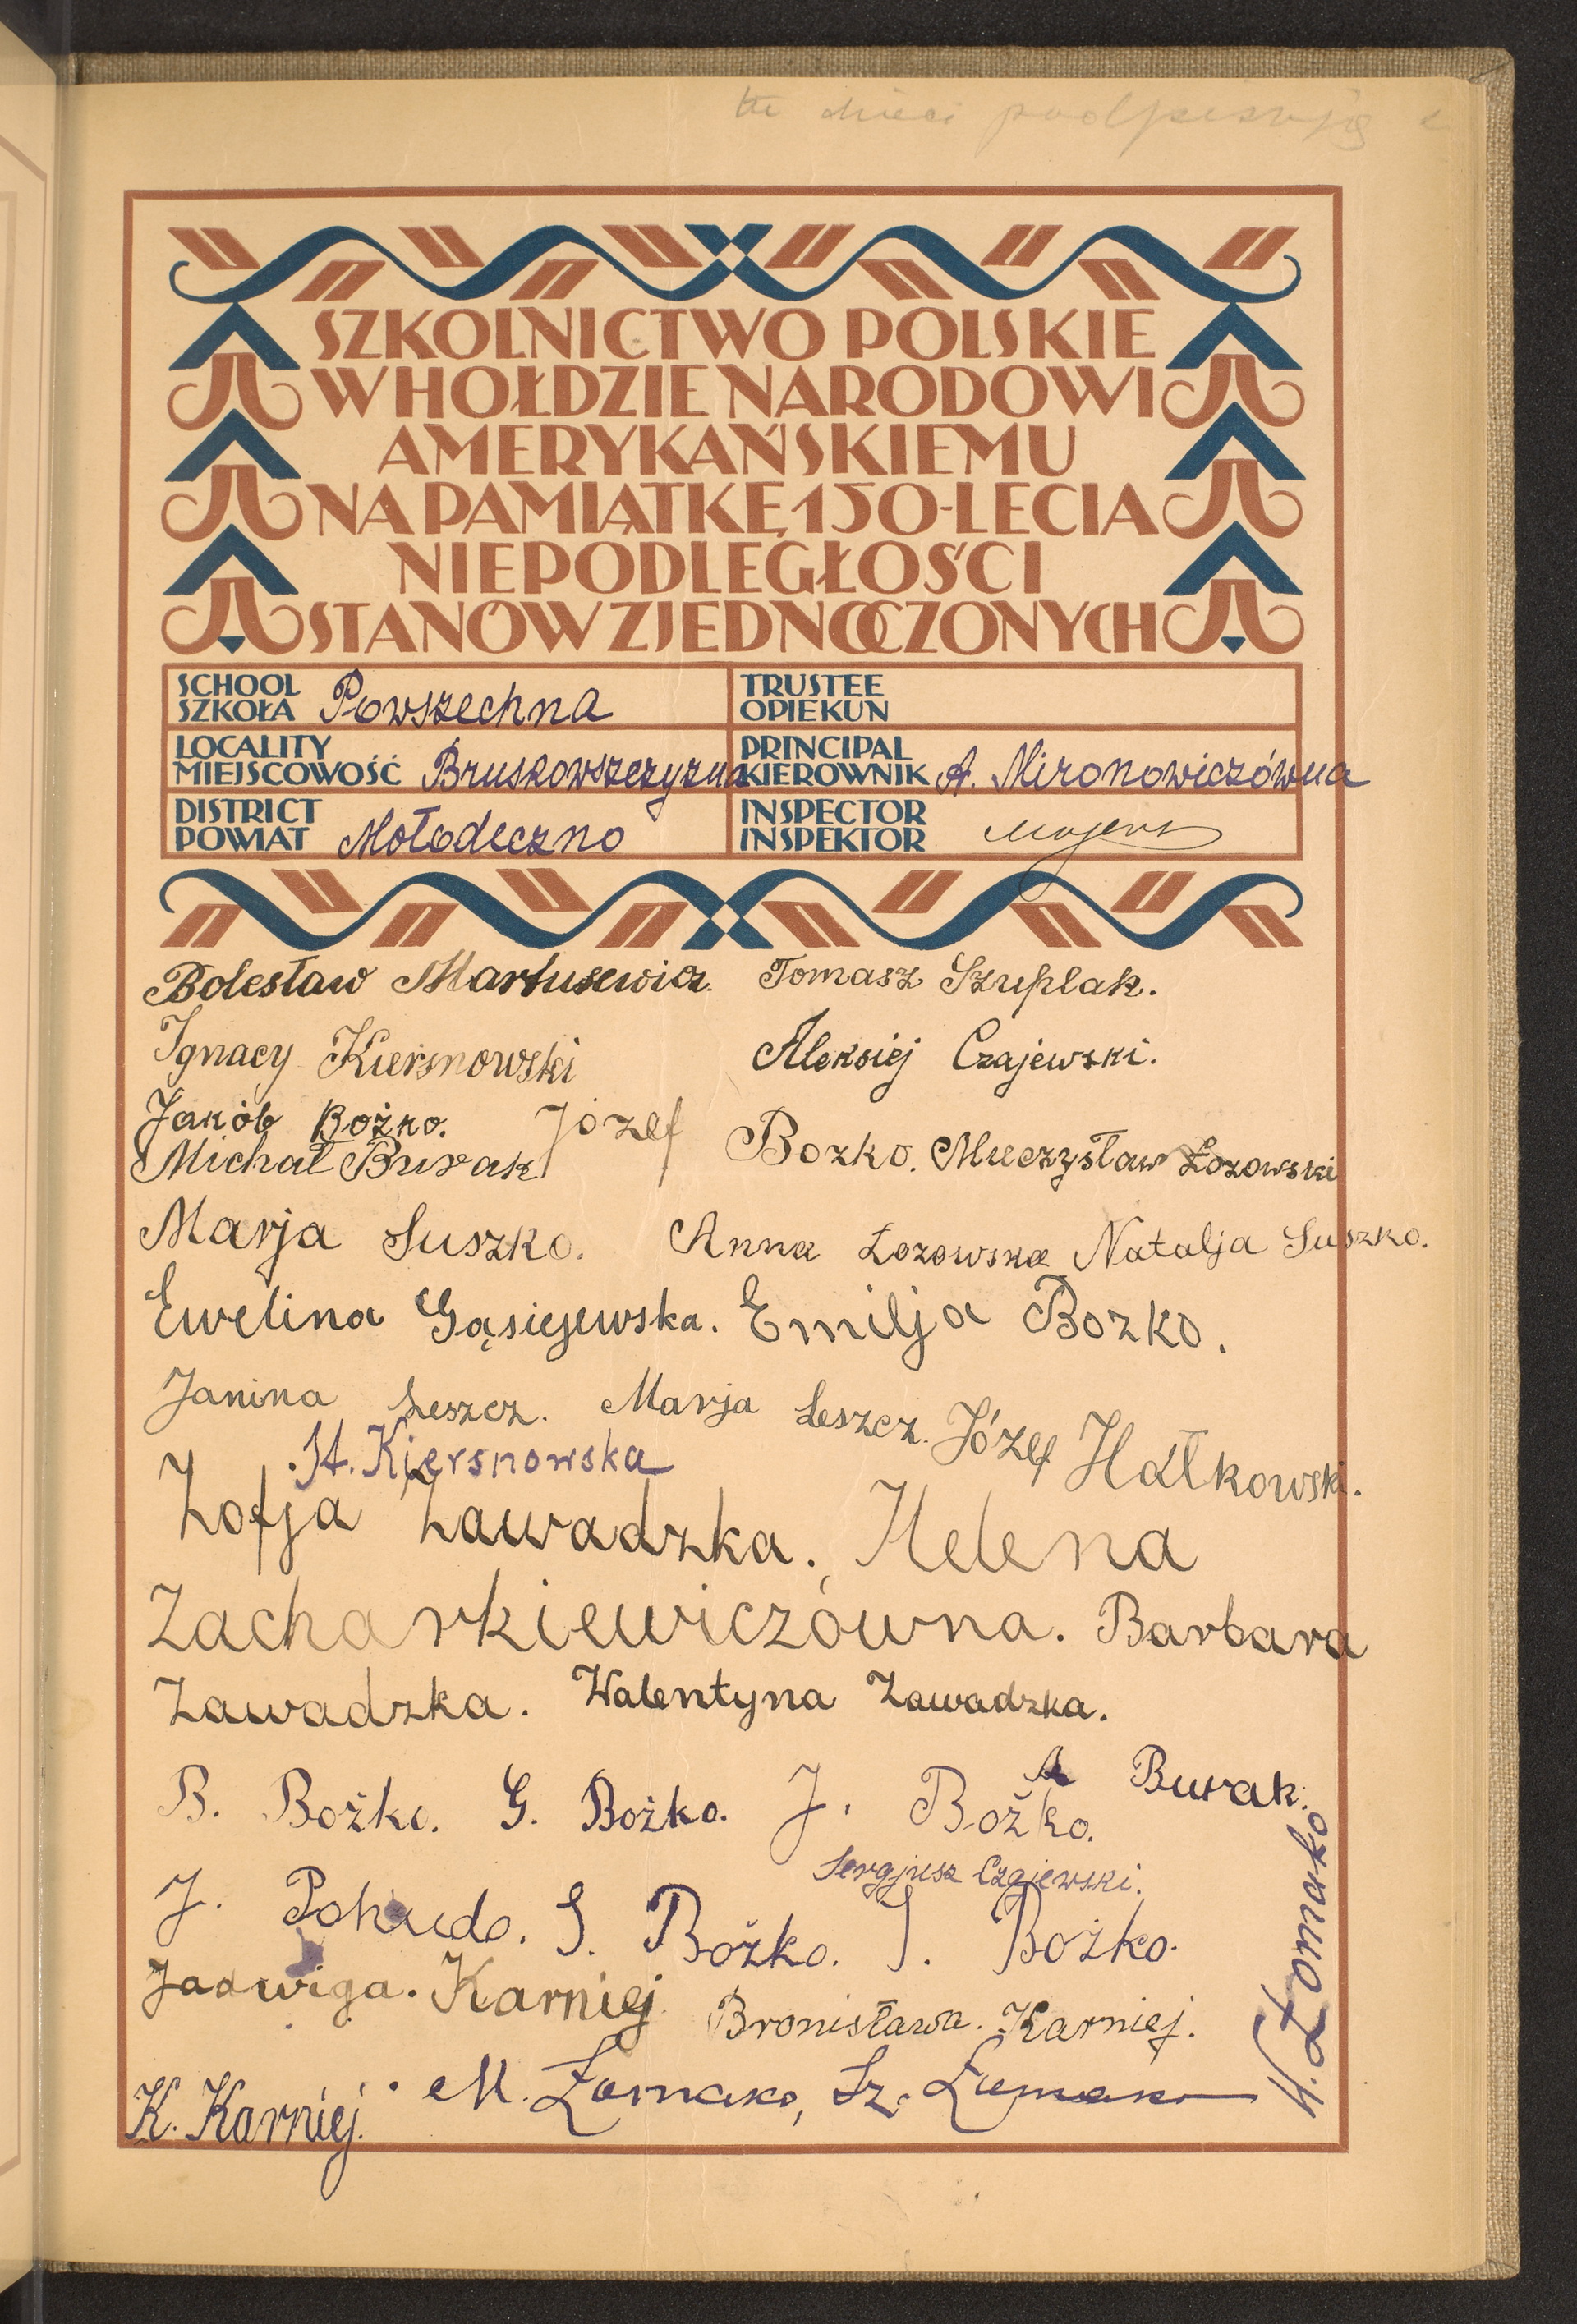 tu dzieci podpisują
SZKOLNICTWO POLSKIE
W HOŁDZIE NARODOWI
AMERYKAŃSKIEMU
NA PAMIĄTKĘ 150-LECIA
NIEPODLEGŁOŚCI
STANÓW ZJEDNOCZONYCH
SCHOOL
SZKOŁA Powszechna
TRUSTEE
OPIEKUN
LOCALITY
MIEJSCOWOŚĆ Bruskowszczyzna
PRINCIPAL
KIEROWNIK A. Mironowiczówna
DISTRICT
POWIAT Mołodeczno
INSPECTOR
INSPEKTOR
Bolesław Martusewicz. Tomasz Szuplak.
Ignacy Kiersnowski Aleksiej Czajewski.
Jakób Bożko. Józef Bozko. Mieczysław Łozowski
Michał Burak
Marja Suszko. Anna Łozowska Natalja Suszko.
Ewelina Gąsiejewska. Emilja Bozko.
Janina Leszcz. Marja Leszcz. Józef Hałkowski.
St. Kiersnowska
Zofja Zawadzka. Helena
Zacharkiewiczówna. Barbara
Zawadzka. Walentyna Zawadzka.
B. Bożko. G. Bożko. J. Bożko. A Burak.
Sergjusz Czajewski.
J. Pohudo. S. Bożko. J. Bożko.
Jadwiga. Karniej. Bronisława. Karniej.
K. Karniej. M. Łomako, Sz. Łomako
H. Łomako